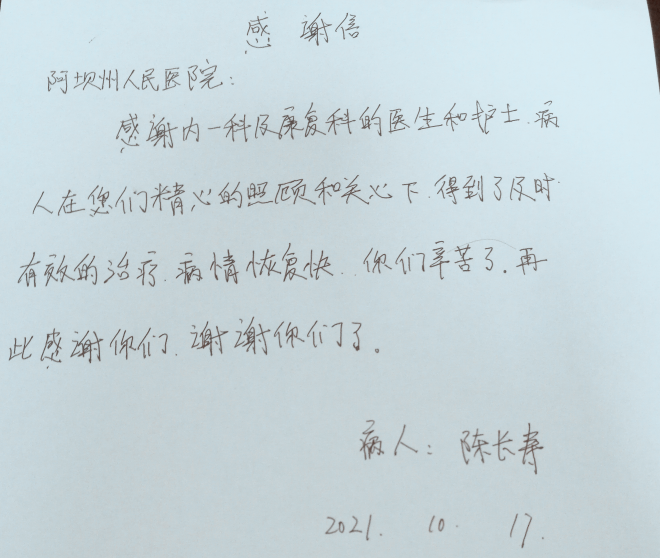 感谢信
阿坝州人民医院:
感谢内一科及康复科的医生和护士.病
人在您们精心的照顾和关心下.得到了及时
有效的治疗.病情恢复快..你们辛苦了.再
此感谢你们.谢谢你们了。
病人:陈长寿
2021. 10. 17.